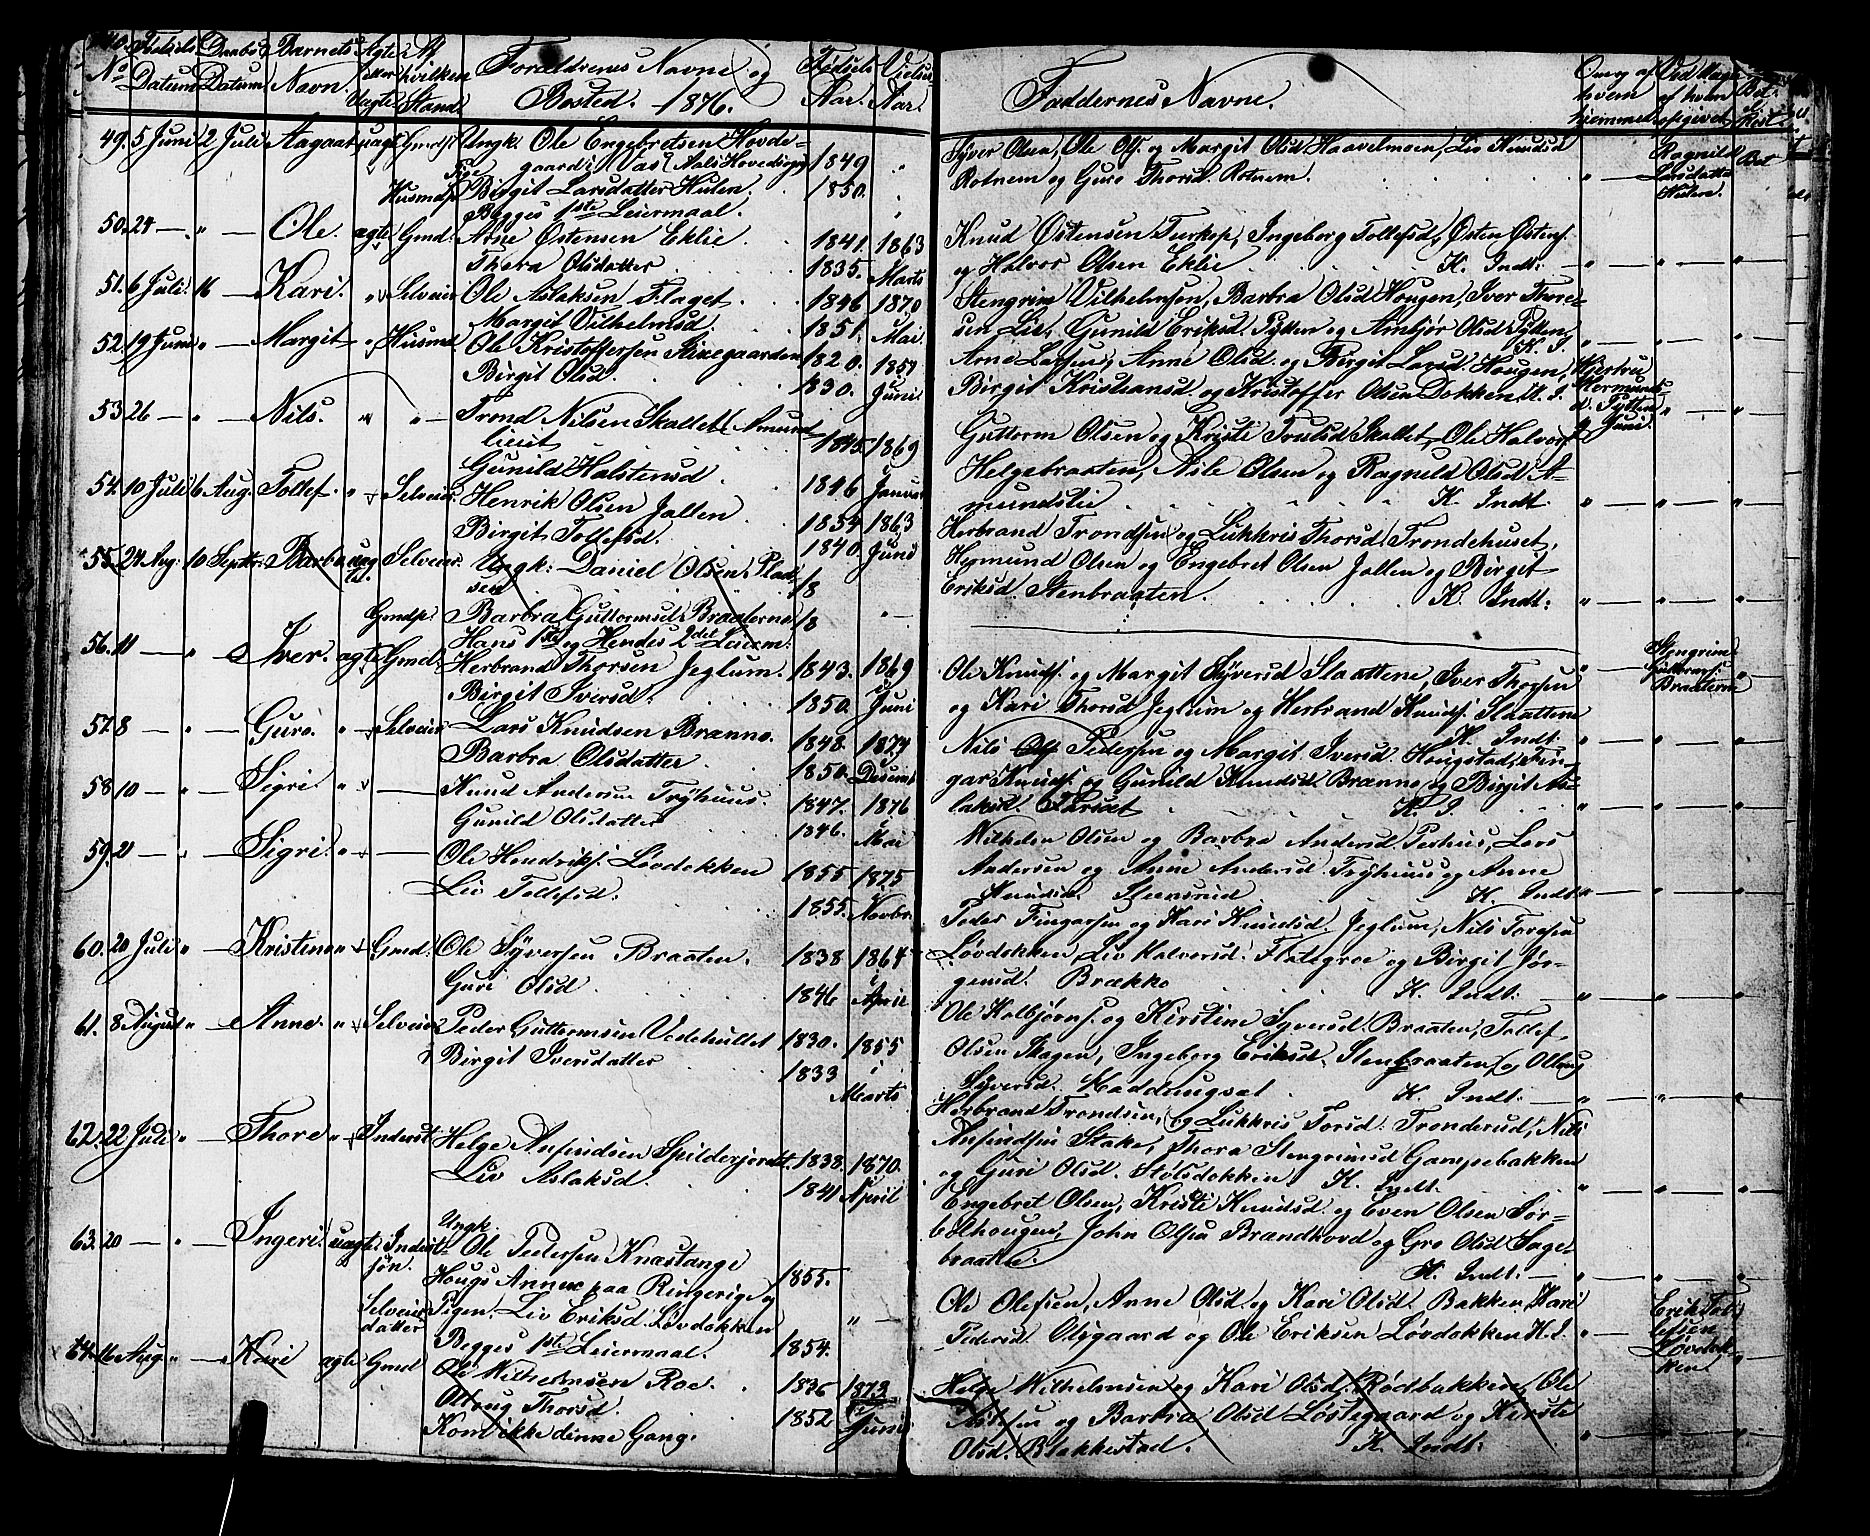 No Fødsels Datum Daabs Datum Barnets Navn. Ægte eller Uægte Af hvilken Stand Forældrenes Navne og Bosted. 1876. Fødsels Aar. Vielses Aar.
49. 5 Juni 2 Juli Aagaat uægte Gmdsf. Ungk. Ole Engebretsen Hovde-
gaards, Vas, Aals Hovedsogn 1849 "
Husmdsf. Pige Birgit Larsdatter Hulen. 1850. "
Begges 1ste Leiermaal.
50. 24 — " — Ole. ægte Gmd. Arne Østensen Eklie. 1841. 1863
Thora Olsdatter 1835. Marts
51. 6 Juli 16 — Kari. " Selveier Ole Aslaksen Flaget. 1846 1870
Margit Vilhelmsd. 1851. Mai.
52. 19 Juni " Margit " Husmd. Ole Kristoffersen Stinegaarden 1820. 1857
Birgit Olsd. 1830. Juni
53. 26 — " — Nils. " " — Trond Nilsen Skallet (Amund-
lieit 1845. 1869
Gunild Halstensd. 1846 Januar
54. 10 Juli 6 Aug. Tollef. " Selveier Henrik Olsen Jallen 1854 1863
Birgit Tollefsd. 1840. Juni
55. 24 Aug. 10 Septbr. Barbra uægte Selveier Ungk: Daniel Olsen Plads-
sen 18
Gmdsf: Barbra Guttormsd. Braaterne 18 " —
Hans 1ste og Hendes 2det Leierm:
56. 11 — " — Iver. ægte Gmd. Herbrand Thorsen Jeglum. 1843. 1869
Birgit Iversd. 1850. i Juni
57. 8 — " — Guro. " Selveier Lars Knudsen Brænno. 1848. 1874
Barbra Olsdatter. 1850. Decemb
58. 10 — " — Sigri " — Knud Andersen Tryhuus. 1847. 1876
Gunild Olsdatter 1846. i Mai
59. 21 — " — Sigri. " — Ole Hendriksf. Løvdokken 1855 1875
Liv Tollefsd. 1855. Novbr.
60. 20 Juli " — Kristine " Gmd. Ole Syversen Braaten. 1838 1864
Guri Olsd. 1846 i April
61. 8 August " — Anne. " Selveier Peder Guttormsen Vedehullet 1830. 1855
Birgit Iversdatter 1833 i Marts
62. 22 Juli " — Thore " Inderst Helge Anfindsen Spilderjordet 1838. 1870.
Liv Aslaksd. 1841 i April
63. 20 — " — Ingeri. uægte. Inderst- Ungk. Ole Pedersen Knastange
søn. Hougs Annex paa Ringerige og 1855.
Selveier- Pigen. Liv Eriksd. Løvdokken " —
datter Begges 1ste Leiermaal. 1854.
64. 16 Aug. " — Kari ægte Gmd Ole Wilhelmsen Roe. 1836 1873
Olloug Thorsd. 1852 i Juni
Kom ikke denne Gang.
Faddernes Navne. Om og af hvem hjemmed Ved Uægte af hvem opgivet
Syver Olsen, Ole Ols. og Margit Olsd Haavelmoen, Liv Knudsd
Rotnem og Guro Thorsd. Rotnem. " — Ragnild Larsdatter Hulen. Bot
Knud Østensen Turkop, Ingeborg Tollefsd, Østen Østens.
og Halvor Olsen Eklie K. Indt: " — " — "
Stengrim Vilhelmsen, Barbra Olsd Hougen, Iver Thore-
sen Lie, Gunild Eriksd. Pytten og Ambjør Olsd Pytten, K. I. " — " — "
Arne Larsen, Anne Olsd. og Birgit Larsd. Hougen,
Birgit Kristiansd. og Kristoffer Olsen Dokken, K. I. Kjestru Hermunds- d. Pytten Juni. " — "
Guttorm Olsen og Kristi Trulsd Skallet, Ole Halvors.
Helgebraaten, Nils Olsen og Ragnild Olsd A-
mundslie K. Indt. " — " — "
Herbrand Trondsen og Lukkris Thorsd. Trondehuset,
Hermund Olsen og Engebret Olsen Jallen og Birgit
Eriksd. Stenbraaten. K. Indt: " — " — "
" — Stengrim Guttormsf. Braaterne "
Ole Knudsf. og Margit Syversd Slaattene, Iver Thorsen
og Kari Thorsd Jeglum og Herbrand Knudsf. Slaattene
K. Indt: " — " — "
Nils Pedersen og Margit Iversd. Hougstad, Fin-
gar Knudsf. og Gunild Knudsd. Brænno, og Birgit As-
laksd. K. I. " — " — "
Wilhelm Olsen og Barbra Andersd Pershus, Lars
Andersen og Anne Andersd Tryhuus og Anne
Knudsd. Steensrud K. Indt. " — " — "
Peder Fingarsen og Kari Knudsd. Jeglum, Nils Toresen
Løvdokken, Liv Halvorsd. Flategroe og Birgit Jør-
gensd. Brækko K. Indt. " — " — "
Ole Kolbjørnsf. og Kirstine Syversd. Braaten, Tollef
Olsen Skagen, Ingeborg Eriksd. Stenbraaten, og Olloug
Syversd. Haddungsat K. Indt. — " — " — "
Herbrand Trondsen, og Lukkris Torsd. Tronderud, Nils
Anfindsen Stake, Thora Stengrimsd Gampebakken
og Guri Olsd. Stølsdokken K. Indt. " — " — "
Engebret Olsen, Kristi Knudsd. og Even Olsen Sør-
bølhougen, John Olsen Brandkovd og Gro Olsd Sage-
braatte. K. Indt: — " — " — "
Ole Olesen, Anne Olsd. og Kari Olsd. Bakken, Kari
Pedersd. Olsgaard og Ole Eriksen Løvdokken K. I. " — Erik Tol- lefsen Løvdok- ken "
Helge Wilhelmsen og Kari Olsd. Rødbakken, Ole
og Barbra Olsd Løstegaard og Kirste
Olsd. Blakkestad. K. Indt: " — " — "